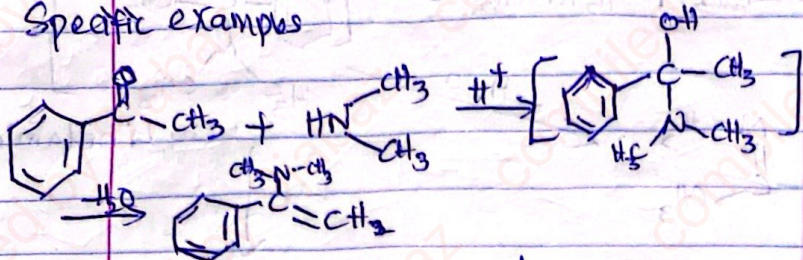 Specific examples
OH
O
C - CH3 + HN CH3 CH3 H+ [ C - CH3 N - CH3 H3C ]
-H2O CH3 N - CH3 C = CH2